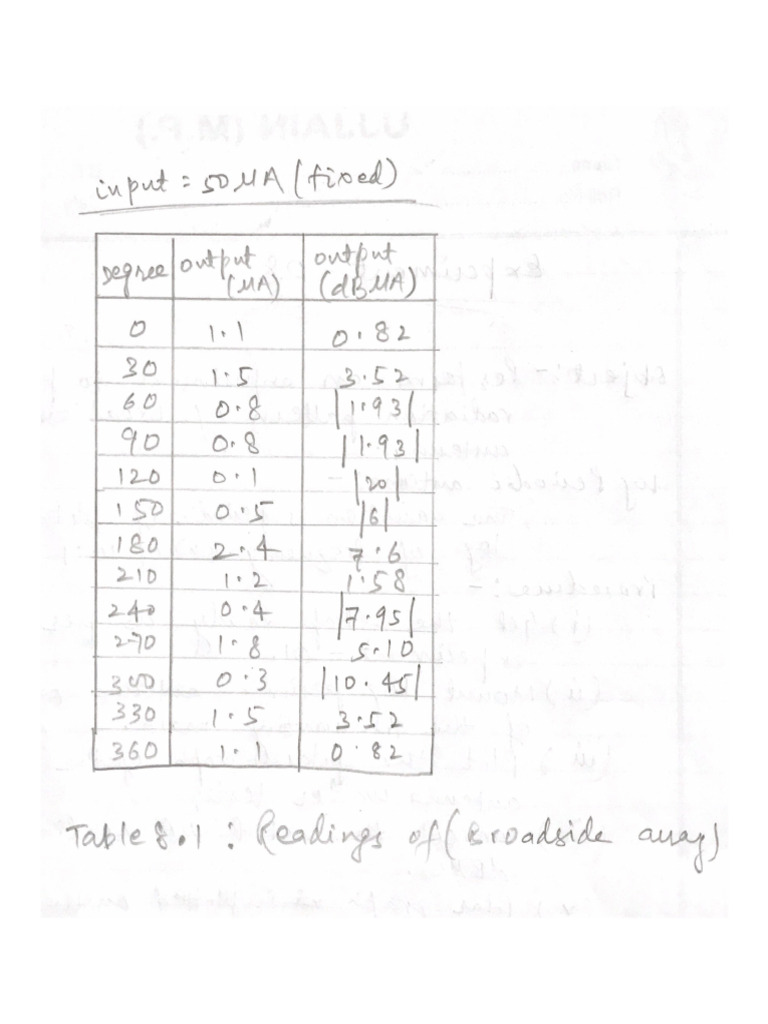 input = 50 μA (fixed)
Degree output (μA) output (dBμA)
0 1.1 0.82
30 1.5 3.52
60 0.8 |1.93|
90 0.8 |1.93|
120 0.1 |20|
150 0.5 |6|
180 2.4 7.6
210 1.2 1.58
240 0.4 |7.95|
270 1.8 5.10
300 0.3 |10.45|
330 1.5 3.52
360 1.1 0.82
Table 8.1 : Readings of (Broadside array)